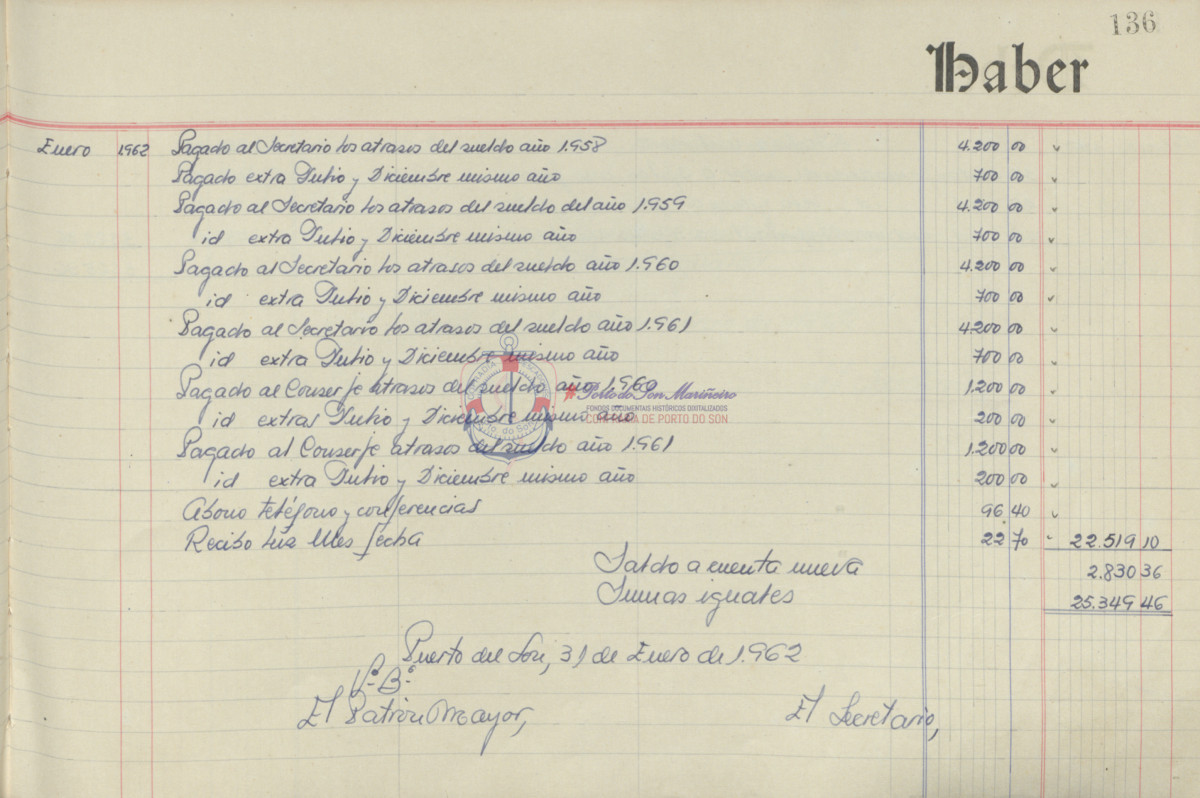 136
Haber
Enero 1962 Pagado al Secretario los atrasos del sueldo año 1.958 4.200 00
Pagado extra Julio y Diciembre mismo año 700 00
Pagado al Secretario los atrasos del sueldo del año 1.959 4.200 00
id extra Julio y Diciembre mismo año 700 00
Pagado al Secretario los atrasos del sueldo año 1.960 4.200 00
id extra Julio y Diciembre mismo año 700 00
Pagado al Secretario los atrasos del sueldo año 1.961 4.200 00
id extra Julio y Diciembre mismo año 700 00
Pagado al Conserje atrasos del sueldo año 1.960 1.200 00
#Porto do Son Mariñeiro
FONDOS DOCUMENTAIS HISTÓRICOS DIXITALIZADOS
CONFRARÍA DE PORTO DO SON
id extras Julio y Diciembre mismo año 200 00
Pagado al Conserje atrasos del sueldo año 1.961 1.200 00
id extra Julio y Diciembre mismo año 200 00
Abono teléfono y conferencias 96 40
Recibo luz mes fecha 22 70 22.519 10
Saldo a cuenta nueva 2.830 36
Sumas iguales 25.349 46
Puerto del Son, 31 de Enero de 1.962
Vº-Bº-
El Patrón Mayor,
El Secretario,